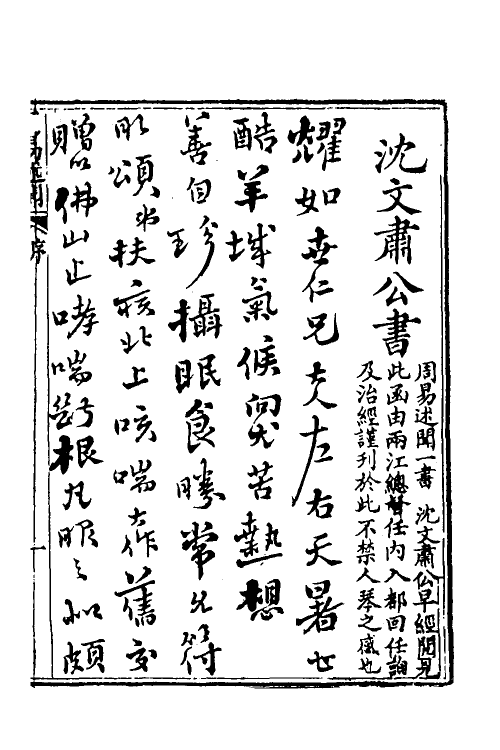 沈文肅公書
周易述聞一書 沈文肅公早經閱見
此函由兩江總督任內入都回任詢
及治經謹刊於此不禁人琴之感也
耀如世仁兄大人左右天暑七
酷羊城氣候更苦熱想
善自珍攝眠食勝常允符
頌弟扶疾北上咳喘大作舊
贈佛山止哮喘 根丸服之似頗
序
一